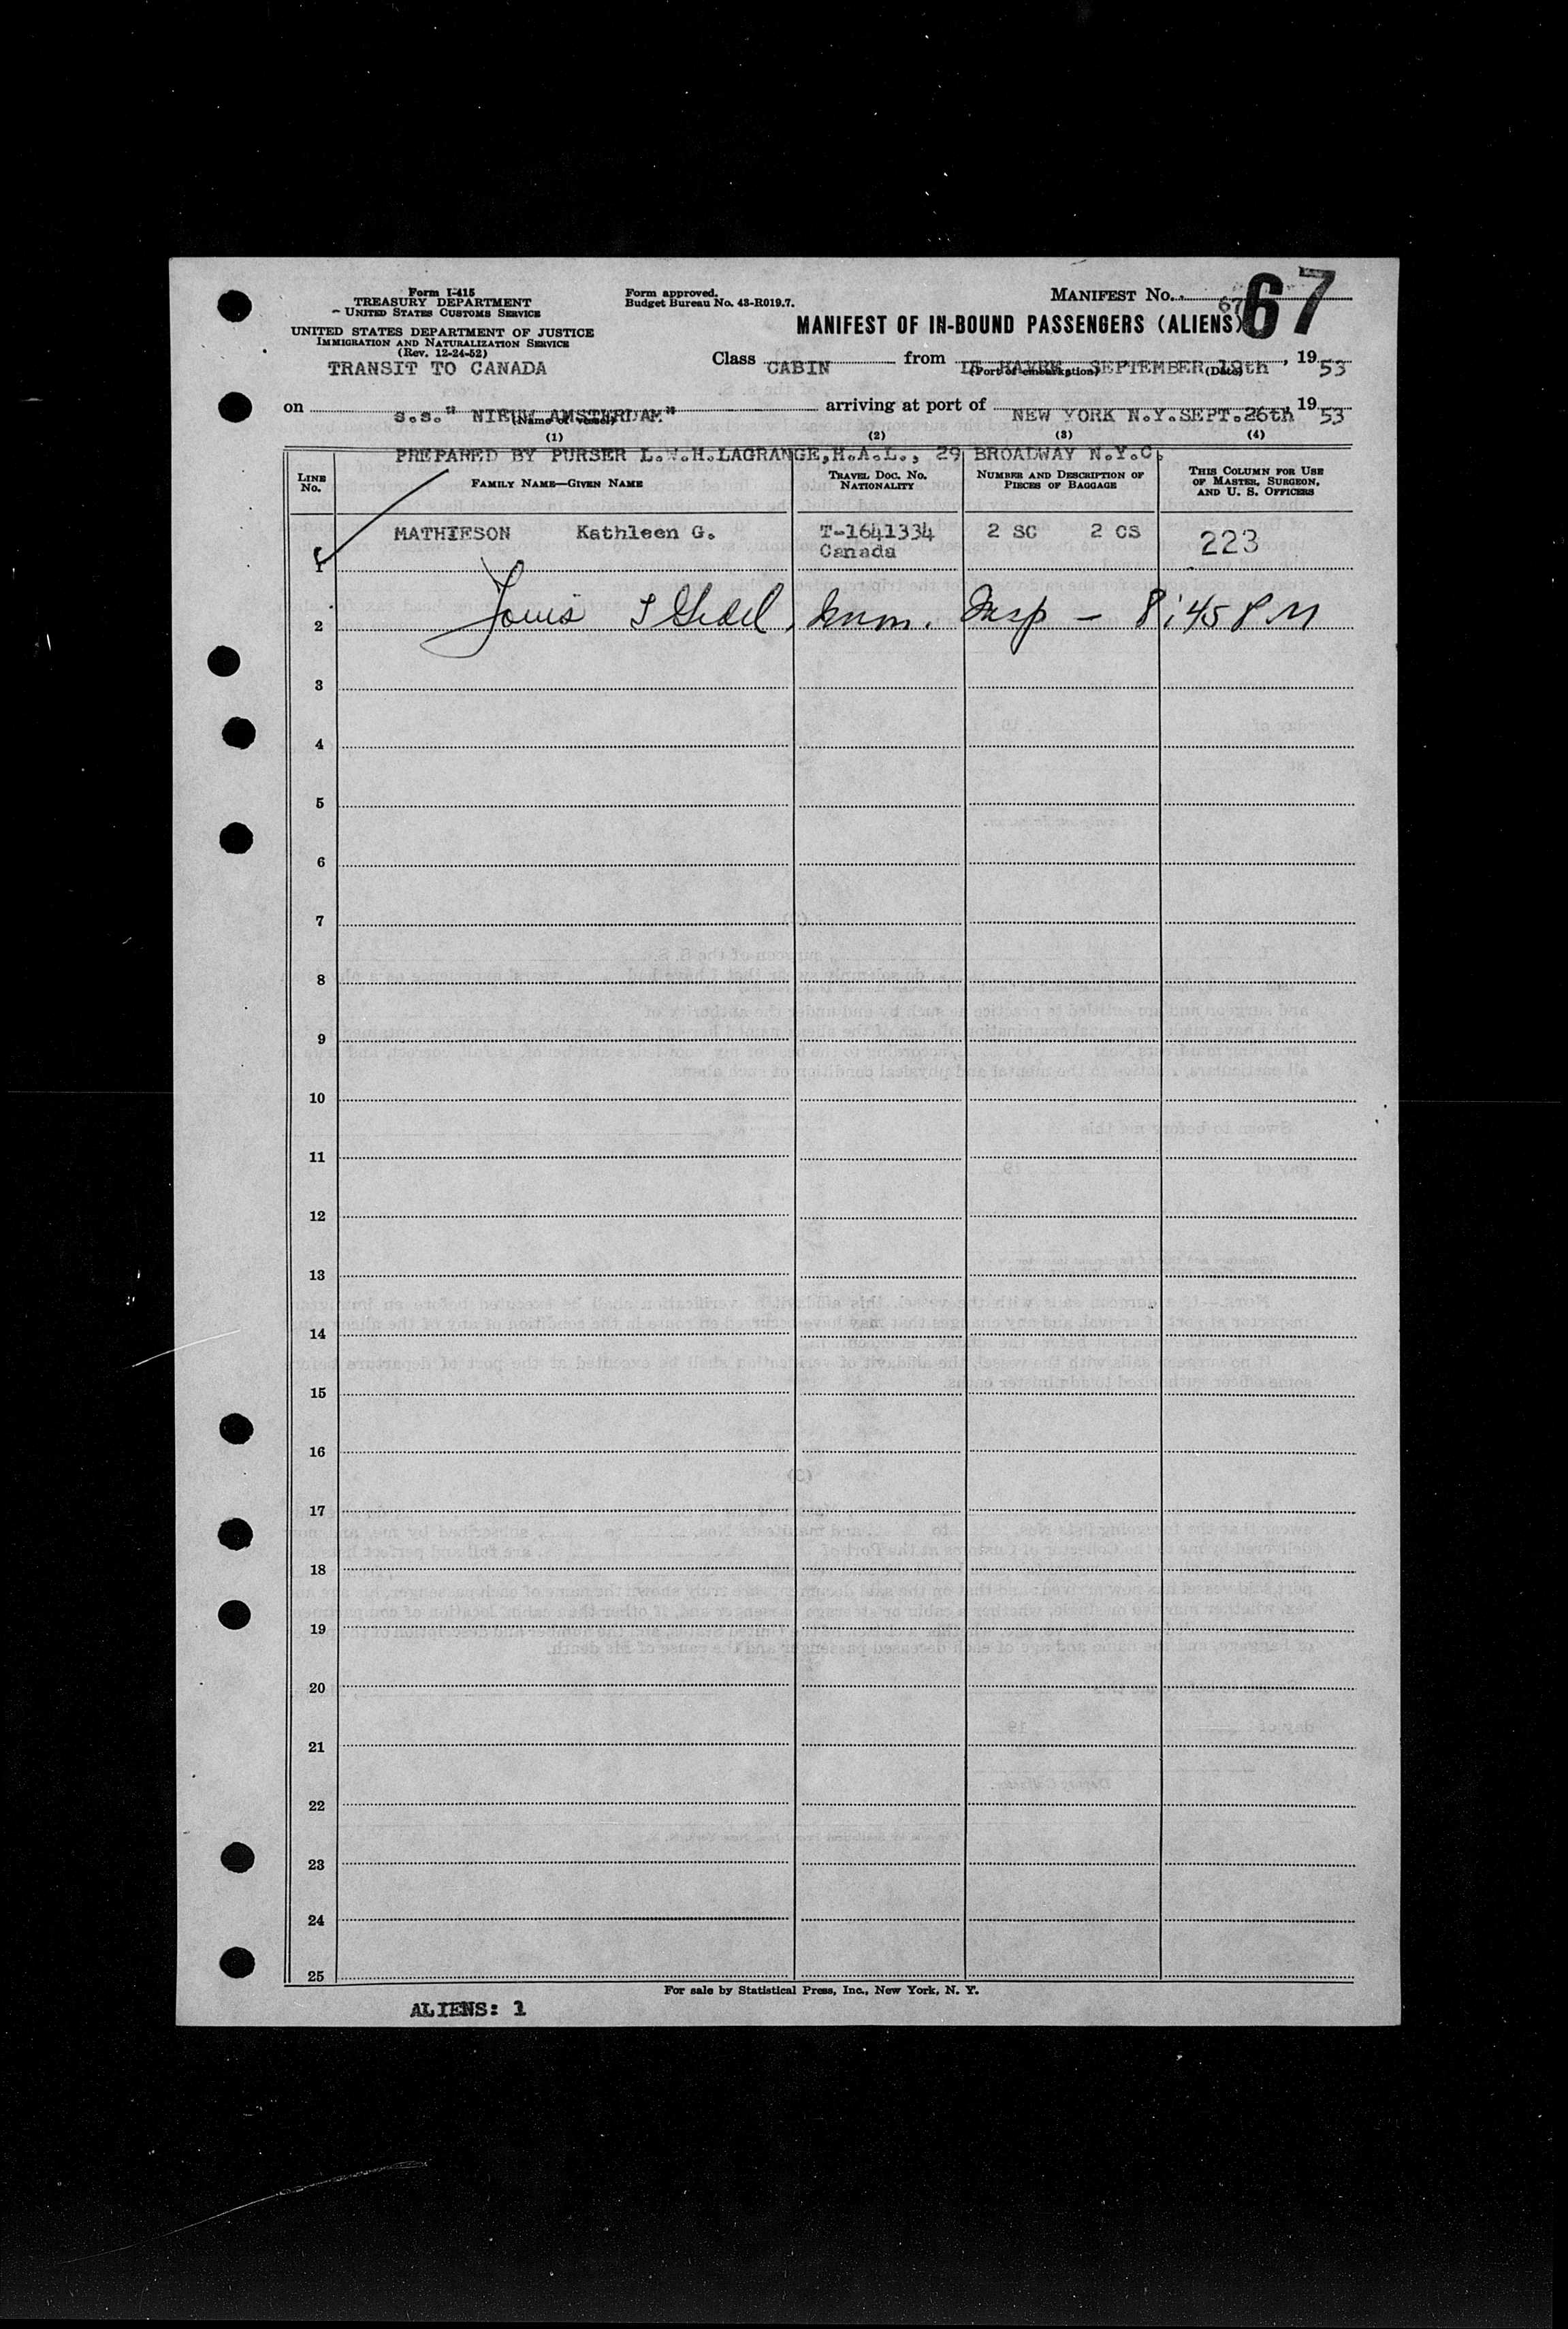 Form I-415
TREASURY DEPARTMENT
UNITED STATES CUSTOMS SERVICE
UNITED STATES DEPARTMENT OF JUSTICE
IMMIGRATION AND NATURALIZATION SERVICE
(Rev. 12-24-52)
TRANSIT TO CANADA
Form approved.
Budget Bureau No. 43-R019.7.
MANIFEST No. 67
67
MANIFEST OF IN-BOUND PASSENGERS (ALIENS)
Class CABIN from LE HAVRE SEPTEMBER 19th, 1953
(Port of embarkation) (Date)
on s.s." NIEUW AMSTERDAM" arriving at port of NEW YORK N.Y. SEPT. 26th 1953
(Name of vessel)
(1) (2) (3) (4)
PREPARED BY PURSER L.W.H.LAGRANGE,H.A.L., 29 BROADWAY N.Y.C.
LINE No. FAMILY NAME—GIVEN NAME TRAVEL DOC. NO. NATIONALITY NUMBER AND DESCRIPTION OF PIECES OF BAGGAGE THIS COLUMN FOR USE OF MASTER, SURGEON, AND U. S. OFFICERS
1 MATHIESON Kathleen G. T-1641334 2 SC 2 CS 223
Canada
2 Louis Imm. Insp - 8:45 PM
3
4
5
6
7
8
9
10
11
12
13
14
15
16
17
18
19
20
21
22
23
24
25
For sale by Statistical Press, Inc., New York, N. Y.
ALIENS: 1